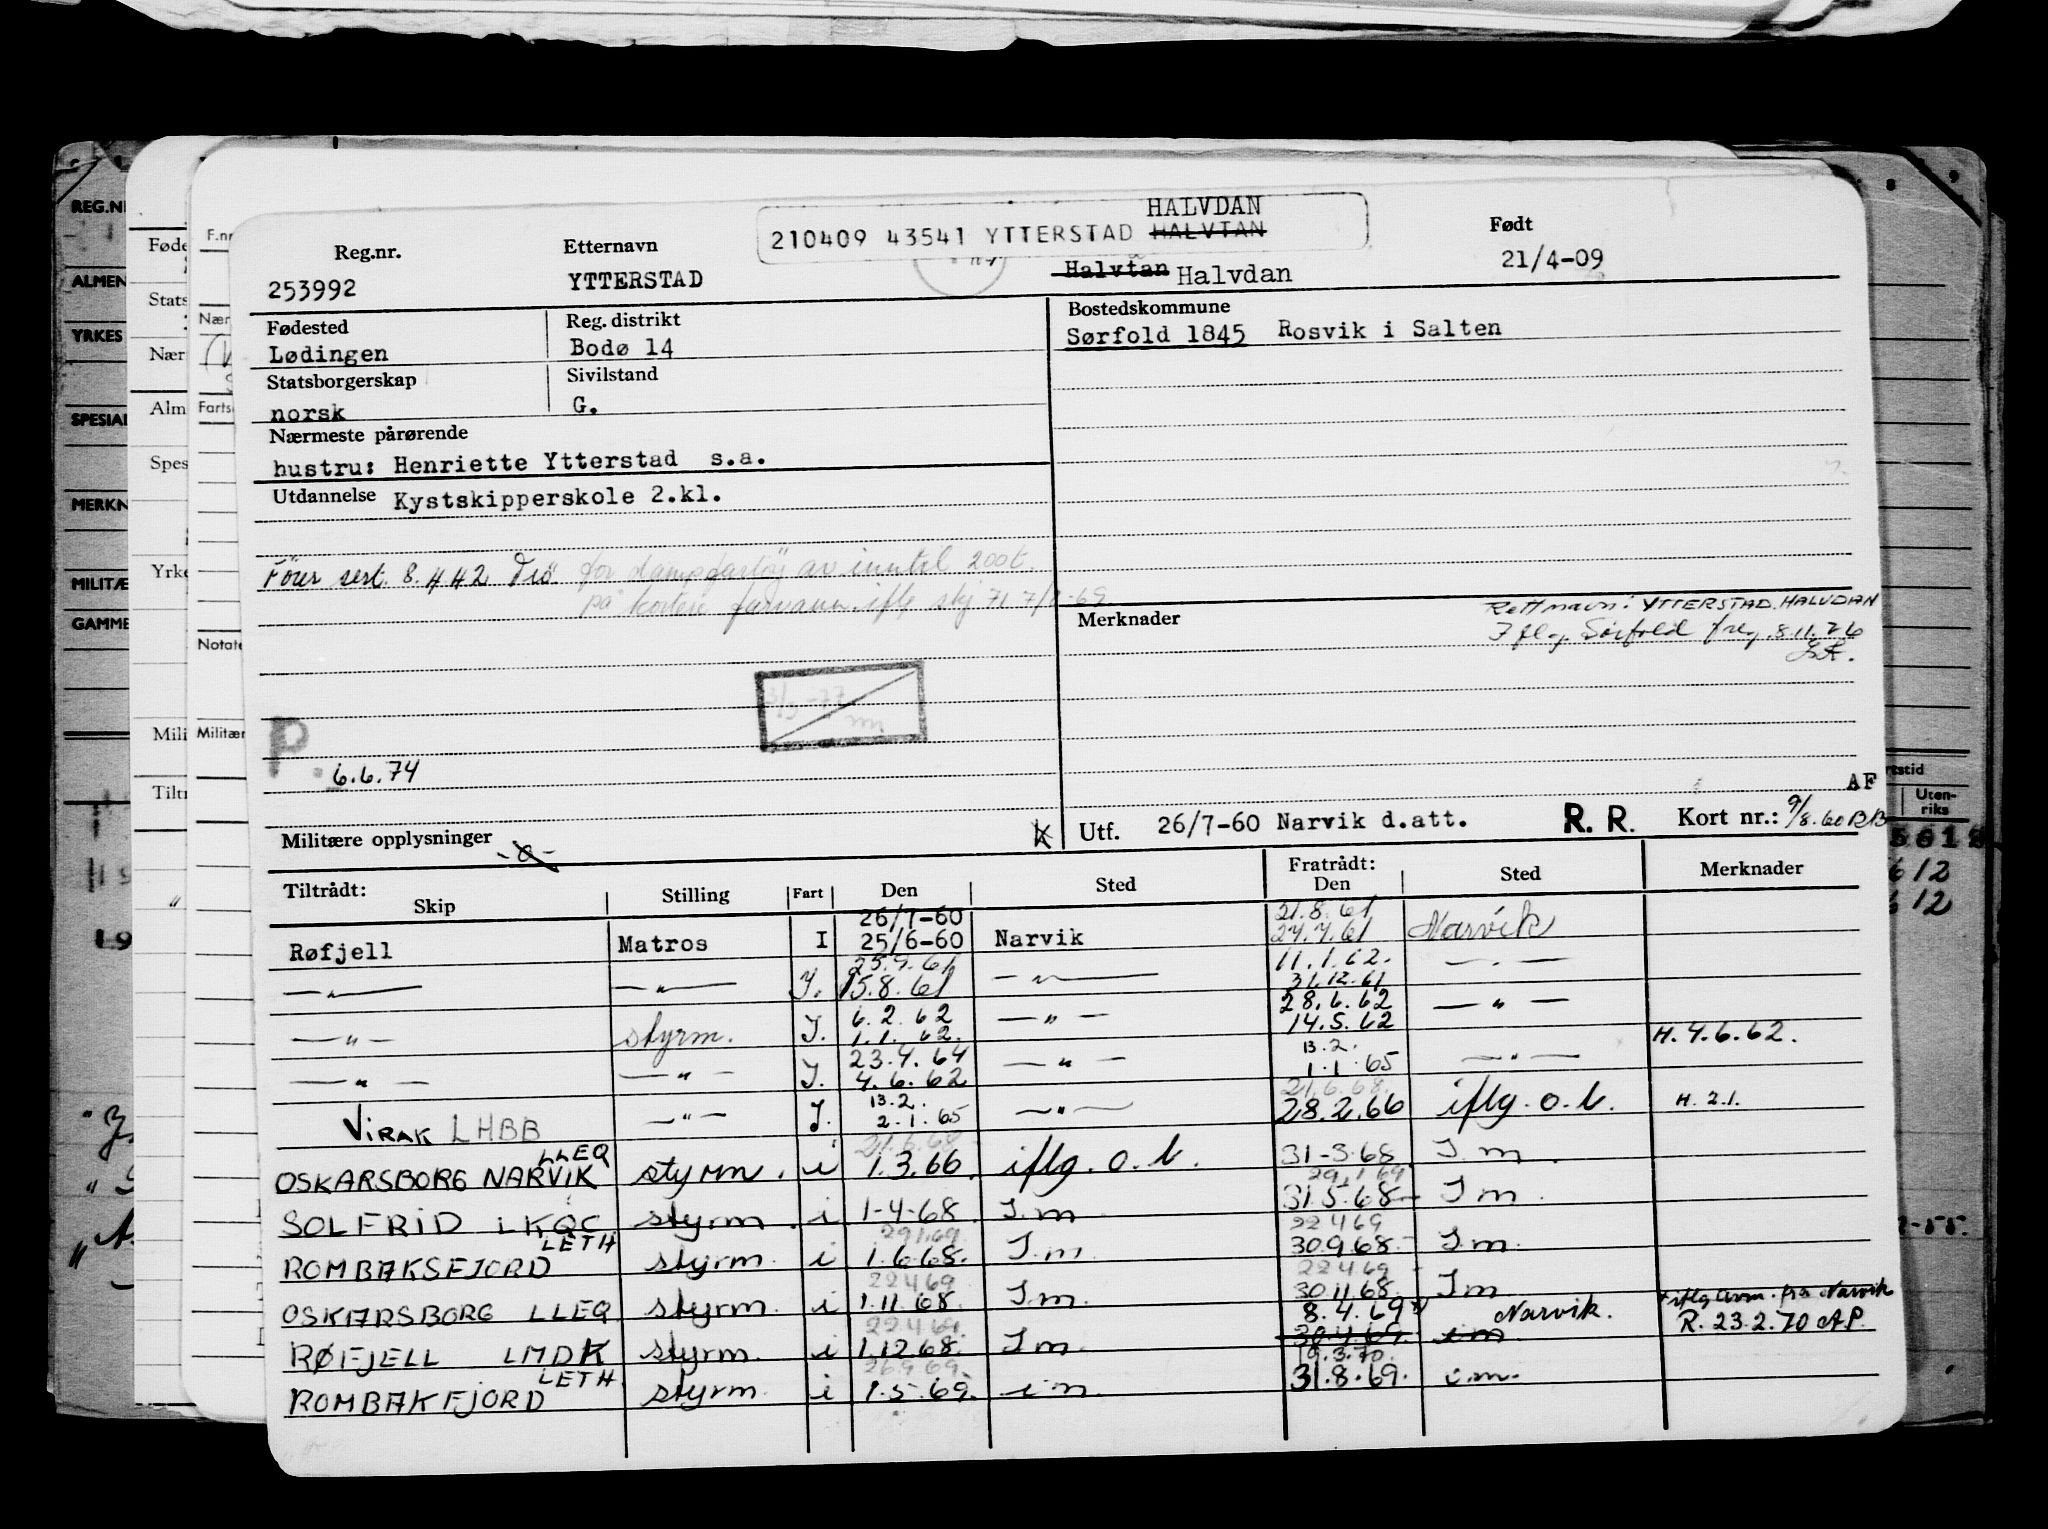 HALVDAN
210409 43541 YTTERSTAD HALVTAN
Reg.nr. Etternavn Født
253992 YTTERSTAD Halvtan Halvdan 21/4-09
Fødested Reg. distrikt Bostedskommune
Lødingen Bodø 14 Sørfold 1845 Rosvik i Salten
Statsborgerskap Sivilstand
norsk G.
Nærmeste pårørende
hustru: Henriette Ytterstad s.a.
Utdannelse Kystskipperskole 2.kl.
Fører sert. 8.442 Trø for dampfartøy av inntil 200 t.
på kortere farvann iflg skj 71
Merknader Rett navn: YTTERSTAD, HALVDAN
Iflg. Sørfold freg. 8.11.76
P. 6.6.74
AF
Militære opplysninger -o- K Utf. 26/7-60 Narvik d.att. R. R. Kort nr.: 9/8.60 RB
Tiltrådt: Skip Stilling Fart Den Sted Fratrådt: Den Sted Merknader
26/7-60 21.8.61
Røfjell Matros I 25/6-60 Narvik 27.7.61 Narvik
25.9.61 11.1.62.
—"— —"— I. 15.8.61 —"— 31.12.61 —"—
6.2.62 28.6.62
—"— styrm. I. 1.1.62. —"— 14.5.62 —"— H. 4.6.62.
23.4.64 13.2.
—"— —"— I. 4.6.62 —"— 1.1.65 —"—
13.2. 21.6.68.
VIRAK LHBB —"— I. 2.1.65 —"— 28.2.66 iflg. o.b. H. 2.1.
LLEQ 21.6.68
OSKARSBORG NARVIK styrm. i 1.3.66 iflg. o.b. 31-3-68 I.m.
29.1.69
SOLFRID LKQC styrm. i 1-4-68 I.m 31.5.68 I m.
LETH 29.1.69 22 4 69
ROMBAKSFJORD styrm. i 1.6.68. I.m. 30.9.68. I.m.
22 4 69 22 4 69
OSKARSBORG LLEQ styrm. i 1.11.68. I.m. 30.11.68. I m
22.4.69 8.4.69 Narvik. iflg avm. fra Narvik
RØFJELL LMDK styrm. i 1.12.68. I.m 30.4.69. i m R. 23.2.70 AP.
LETH 26.9.69. 19.3.70.
ROMBAKFJORD styrm. i 1.5.69. i m. 31.8.69. i.m.
REG.N
ALMEN
YRKES
SPESIAL
MERKN
MILITÆ
GAMME
Føde
Stats
Nær
Alm
Spes
Yrke
Mili
Tiltr
F.nr
Nær
Fartsc
Notate
Militær
rtstid
Uten-
riks
612
612